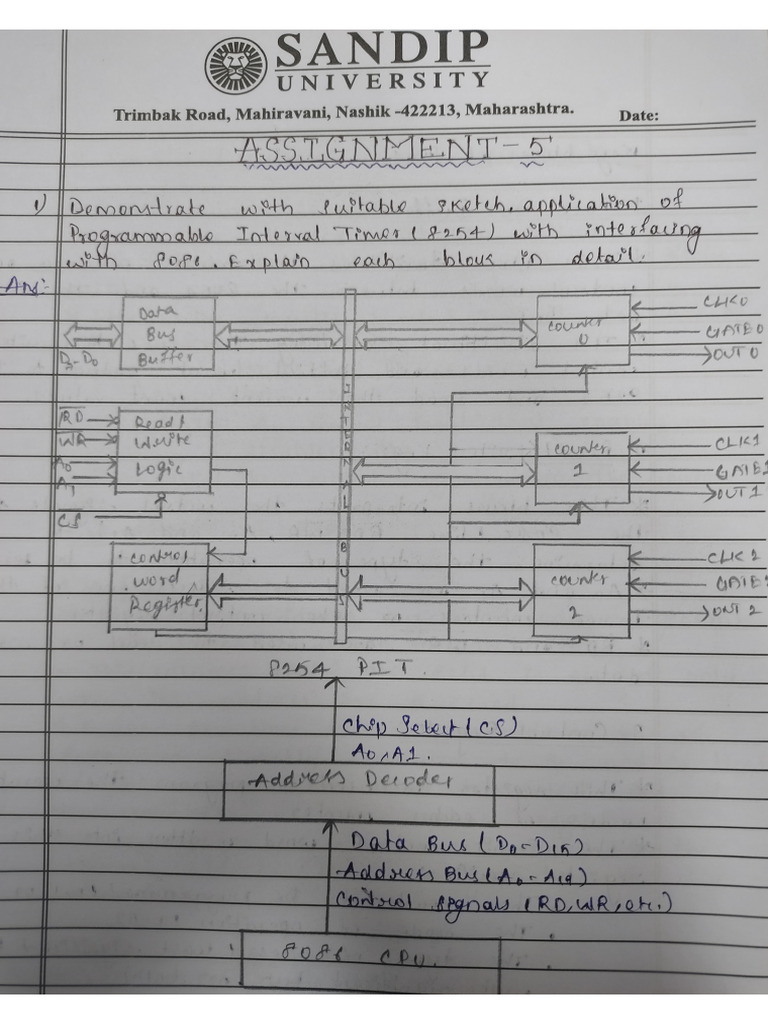 SANDIP
UNIVERSITY
Trimbak Road, Mahiravani, Nashik -422213, Maharashtra. Date:
ASSIGNMENT-5
1) Demonstrate with suitable sketch, application of
Programmable Interval Timer (8254) with interfacing
with 8086. Explain each block in detail.
Ans:
Data
Bus
Buffer
D7-D0
RD
WR
A0
A1
CS
Read/
Write
Logic
Control
Word
Register
INTERNAL BUS
Counter
0
CLK0
GATE0
OUT 0
Counter
1
CLK1
GATE1
OUT 1
Counter
2
CLK 2
GATE2
OUT 2
8254 PIT.
Chip Select (CS)
A0, A1.
Address Decoder
Data Bus (D0-D15)
Address Bus (A0-A19)
Control signals (RD, WR, etc.)
8086 CPU.